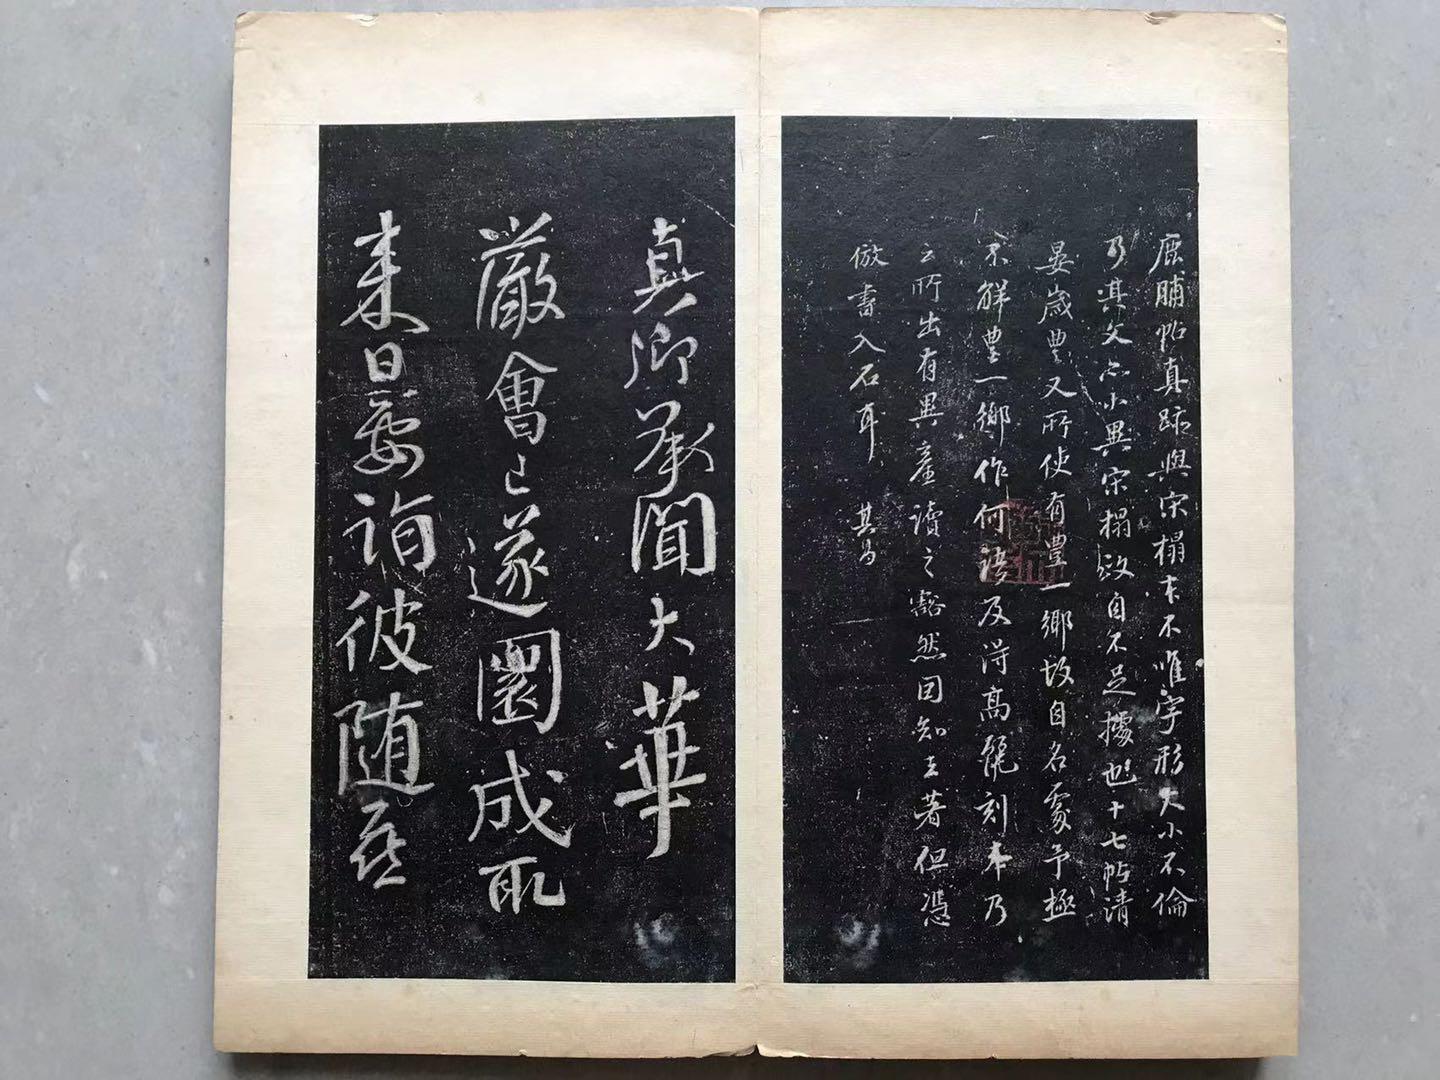 鹿脯帖真跡與宋榻本不唯字形大小不倫
乃其文亦小異宋榻故自不足據也十七帖清
晏歲豊又所使有豊一鄉故自名處予極
不解豊一鄉作何語及得高麗刻本乃
云所出有異產讀之豁然因知立著但憑
倣書入石耳 其昌
真卿承聞大華
嚴會已遂圓成取
来日要詣彼随喜